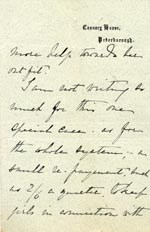 Canonry House,
Peterborough.
more help towards her
outfit.
I am not writing so
much for this one
special case - as for
the whole system - a
small re-payment and
as 2/6 a quarter to keep
girls in connection with